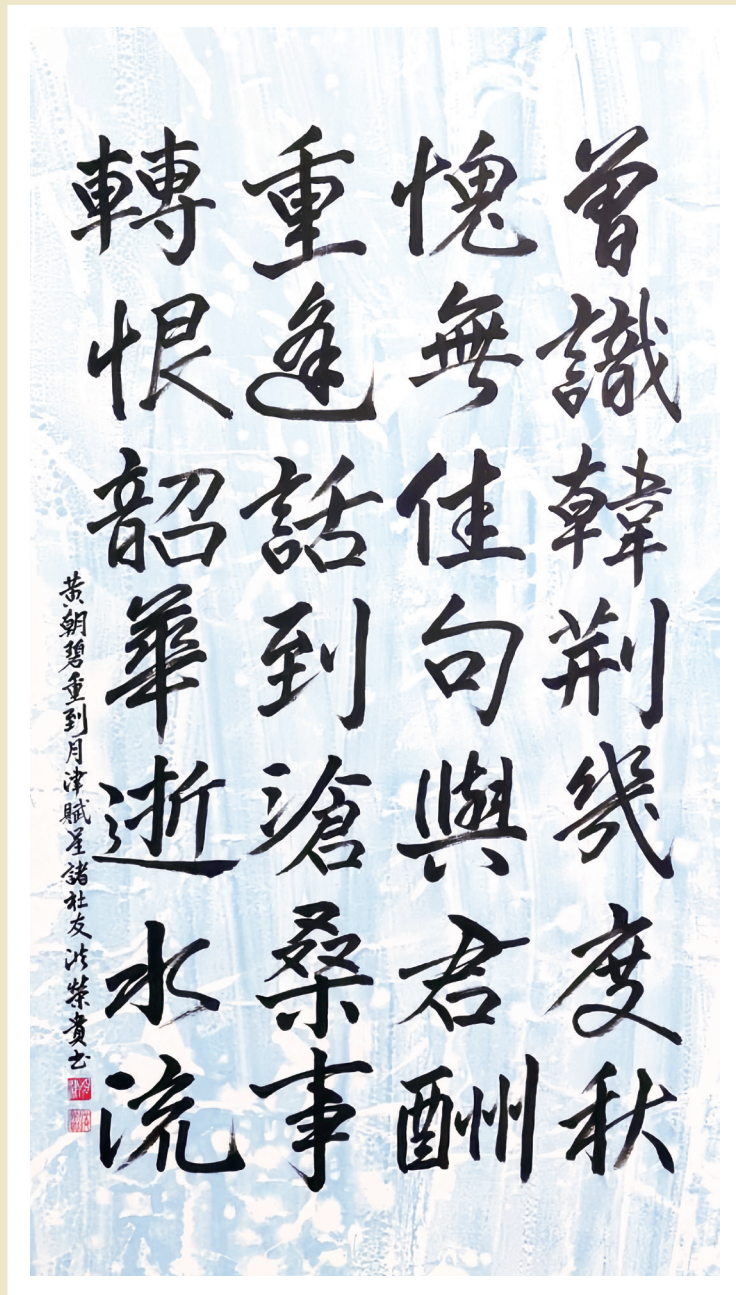 曾識韓荆幾度秋
愧無佳句與君酬
重逢話到滄桑事
轉恨韶華逝水流
黃朝碧重到月津賦呈諸社友 洪榮貴书